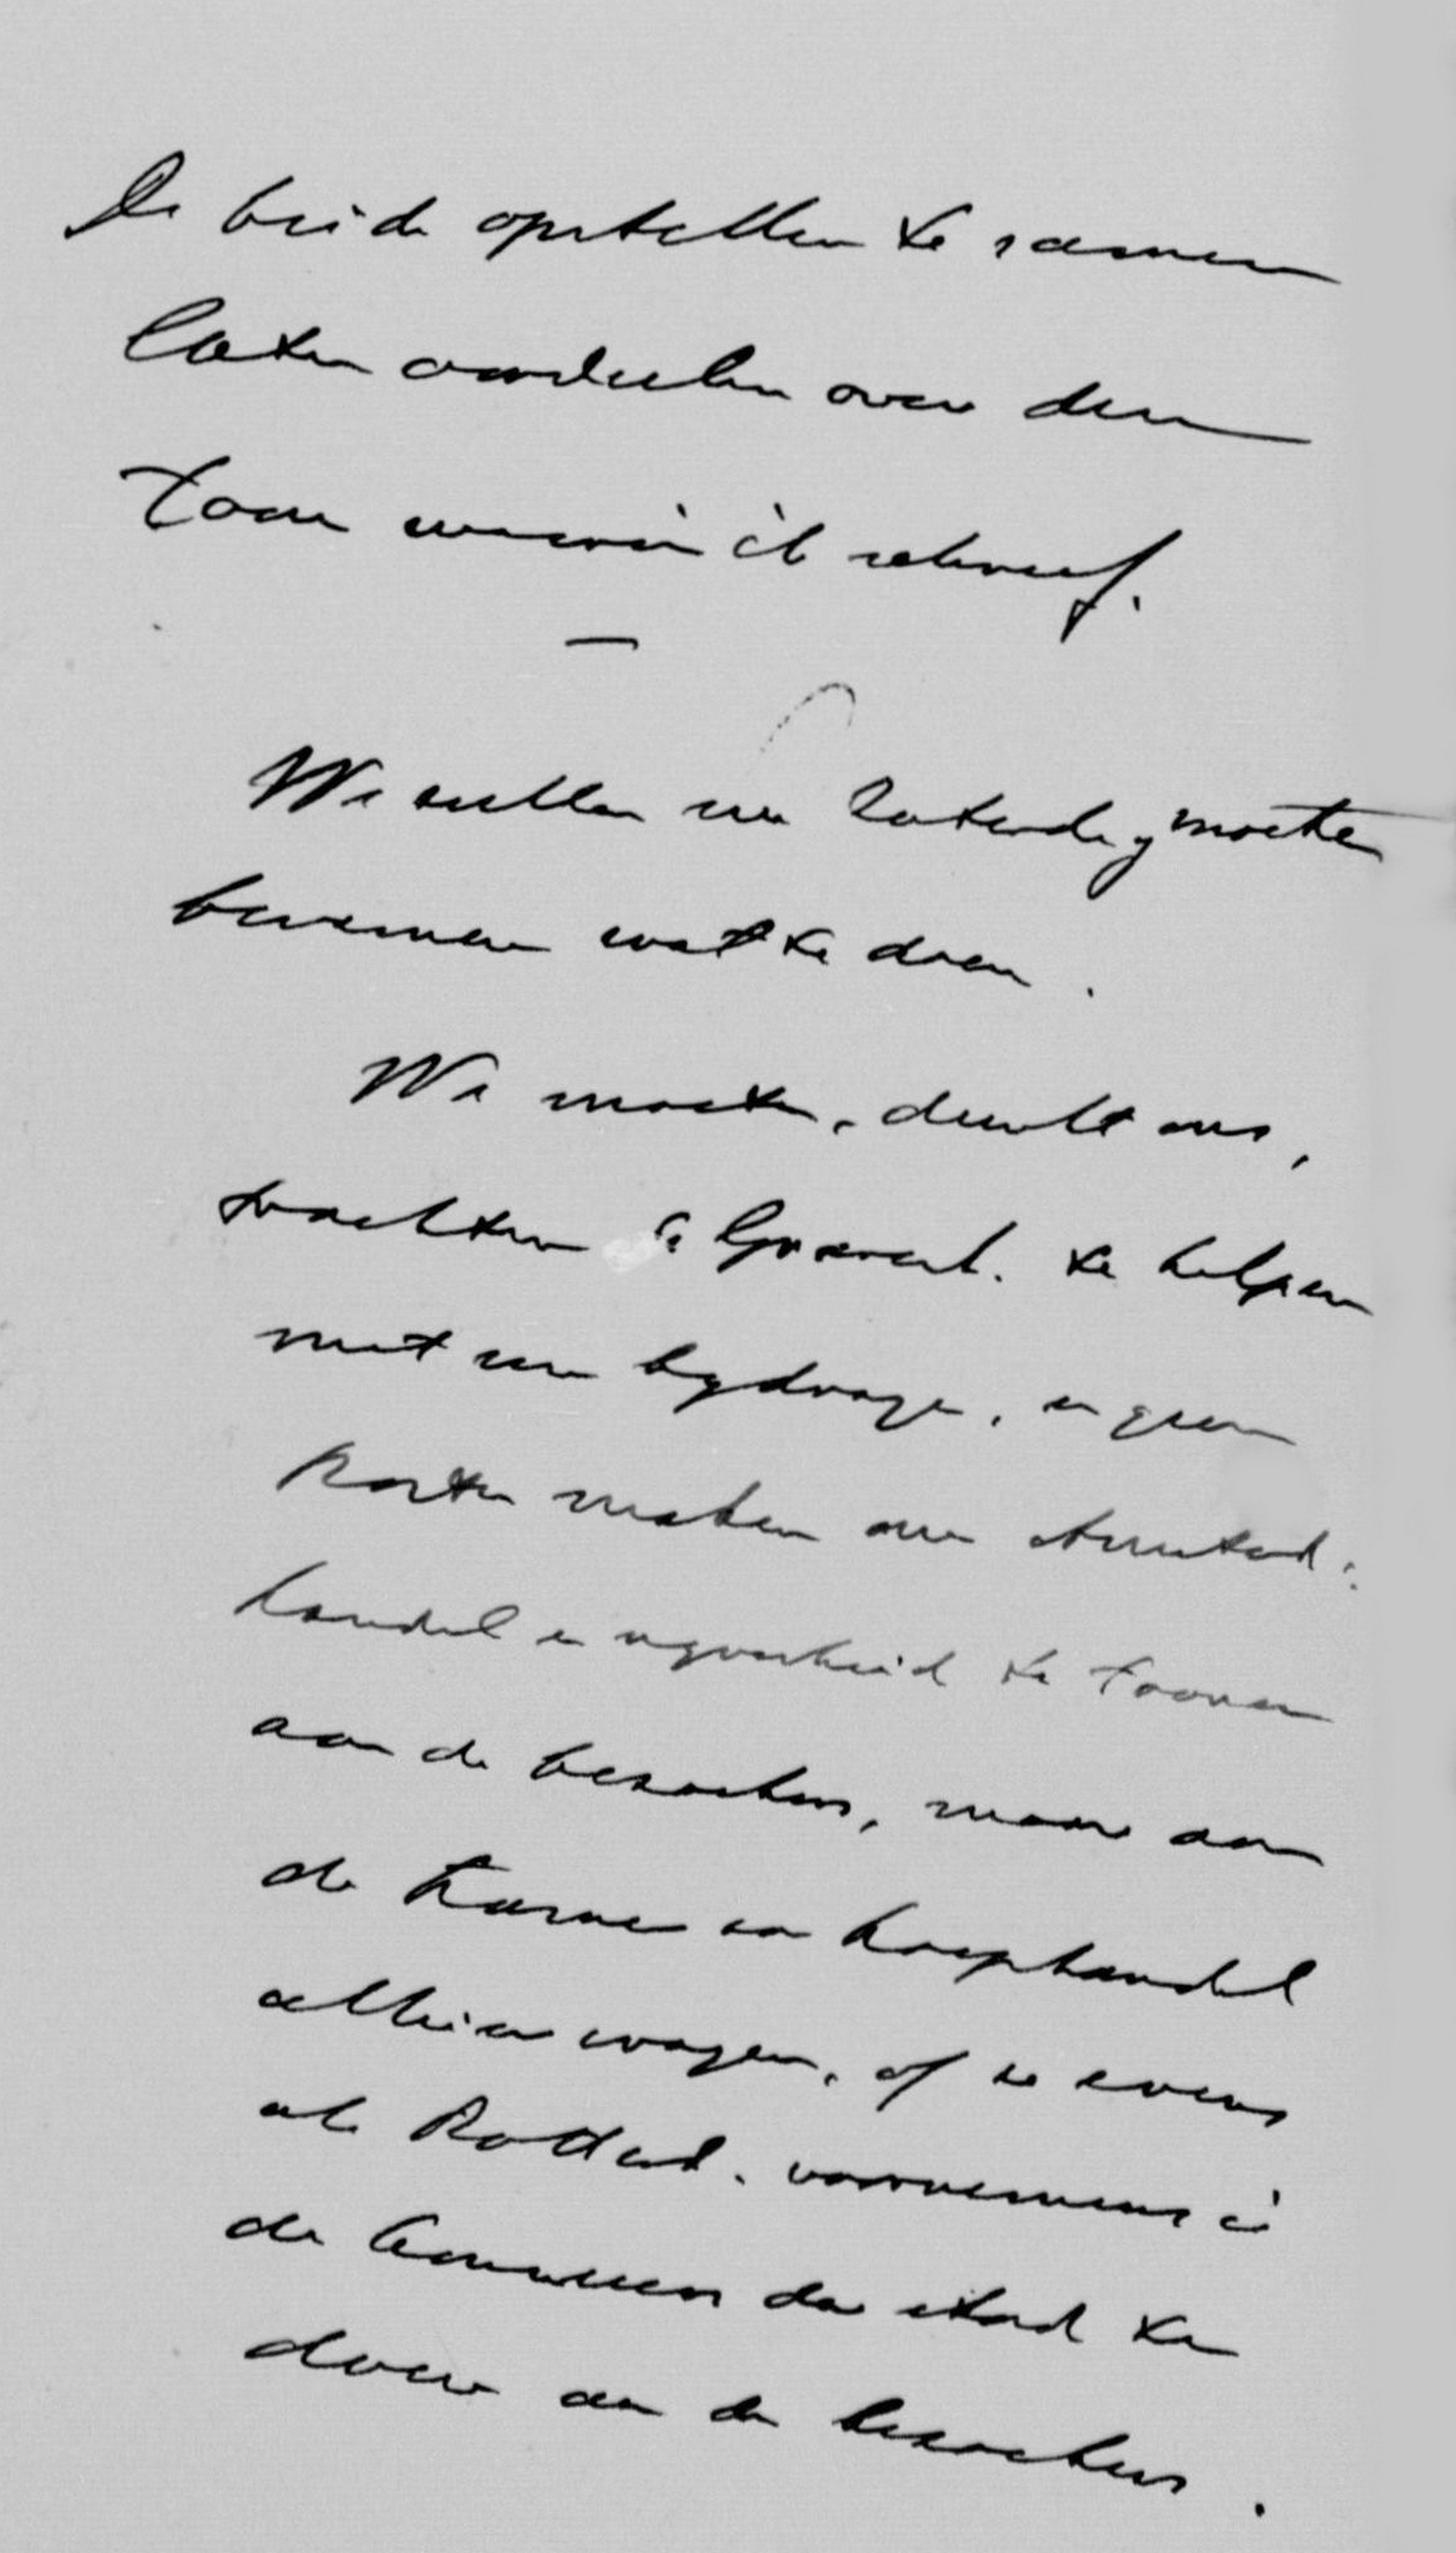 De beide opstellen te samen
laten oordeelen over den
toon waarin ik schreef.
—
We zullen nu Zaterdag moeten
vernemen wat te doen.
We moeten, dunkt ons,
trachten de te helpen
met een bydrage, en geen
kosten maken om Amsterd.
handel en nyverheid te toonen
aan de bezoekers, maar aan
de Kamer van Koophandel
alhier vragen, of ze evens
als Rotterd. voornemens is
de honneurs der stad te
doen aan de bezoekers.